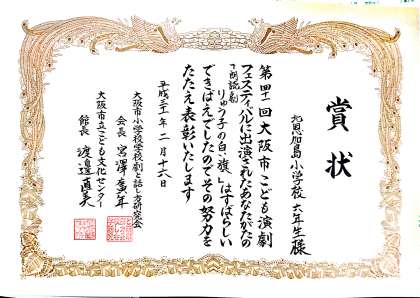 賞状
恩加島小学校 六年生 様
第四十一回大阪市こども演劇
フェスティバルに出演されたあなたがたの
「朗読劇
りゅう子の白い旗」はすばらしい
できばえでしたのでその努力を
たたえ表彰いたします
平成三十一年二月十六日
大阪市小学校学校劇と話し方研究会
会長 宮澤 年
大阪市立こども文化センター
館長 渡邉直美